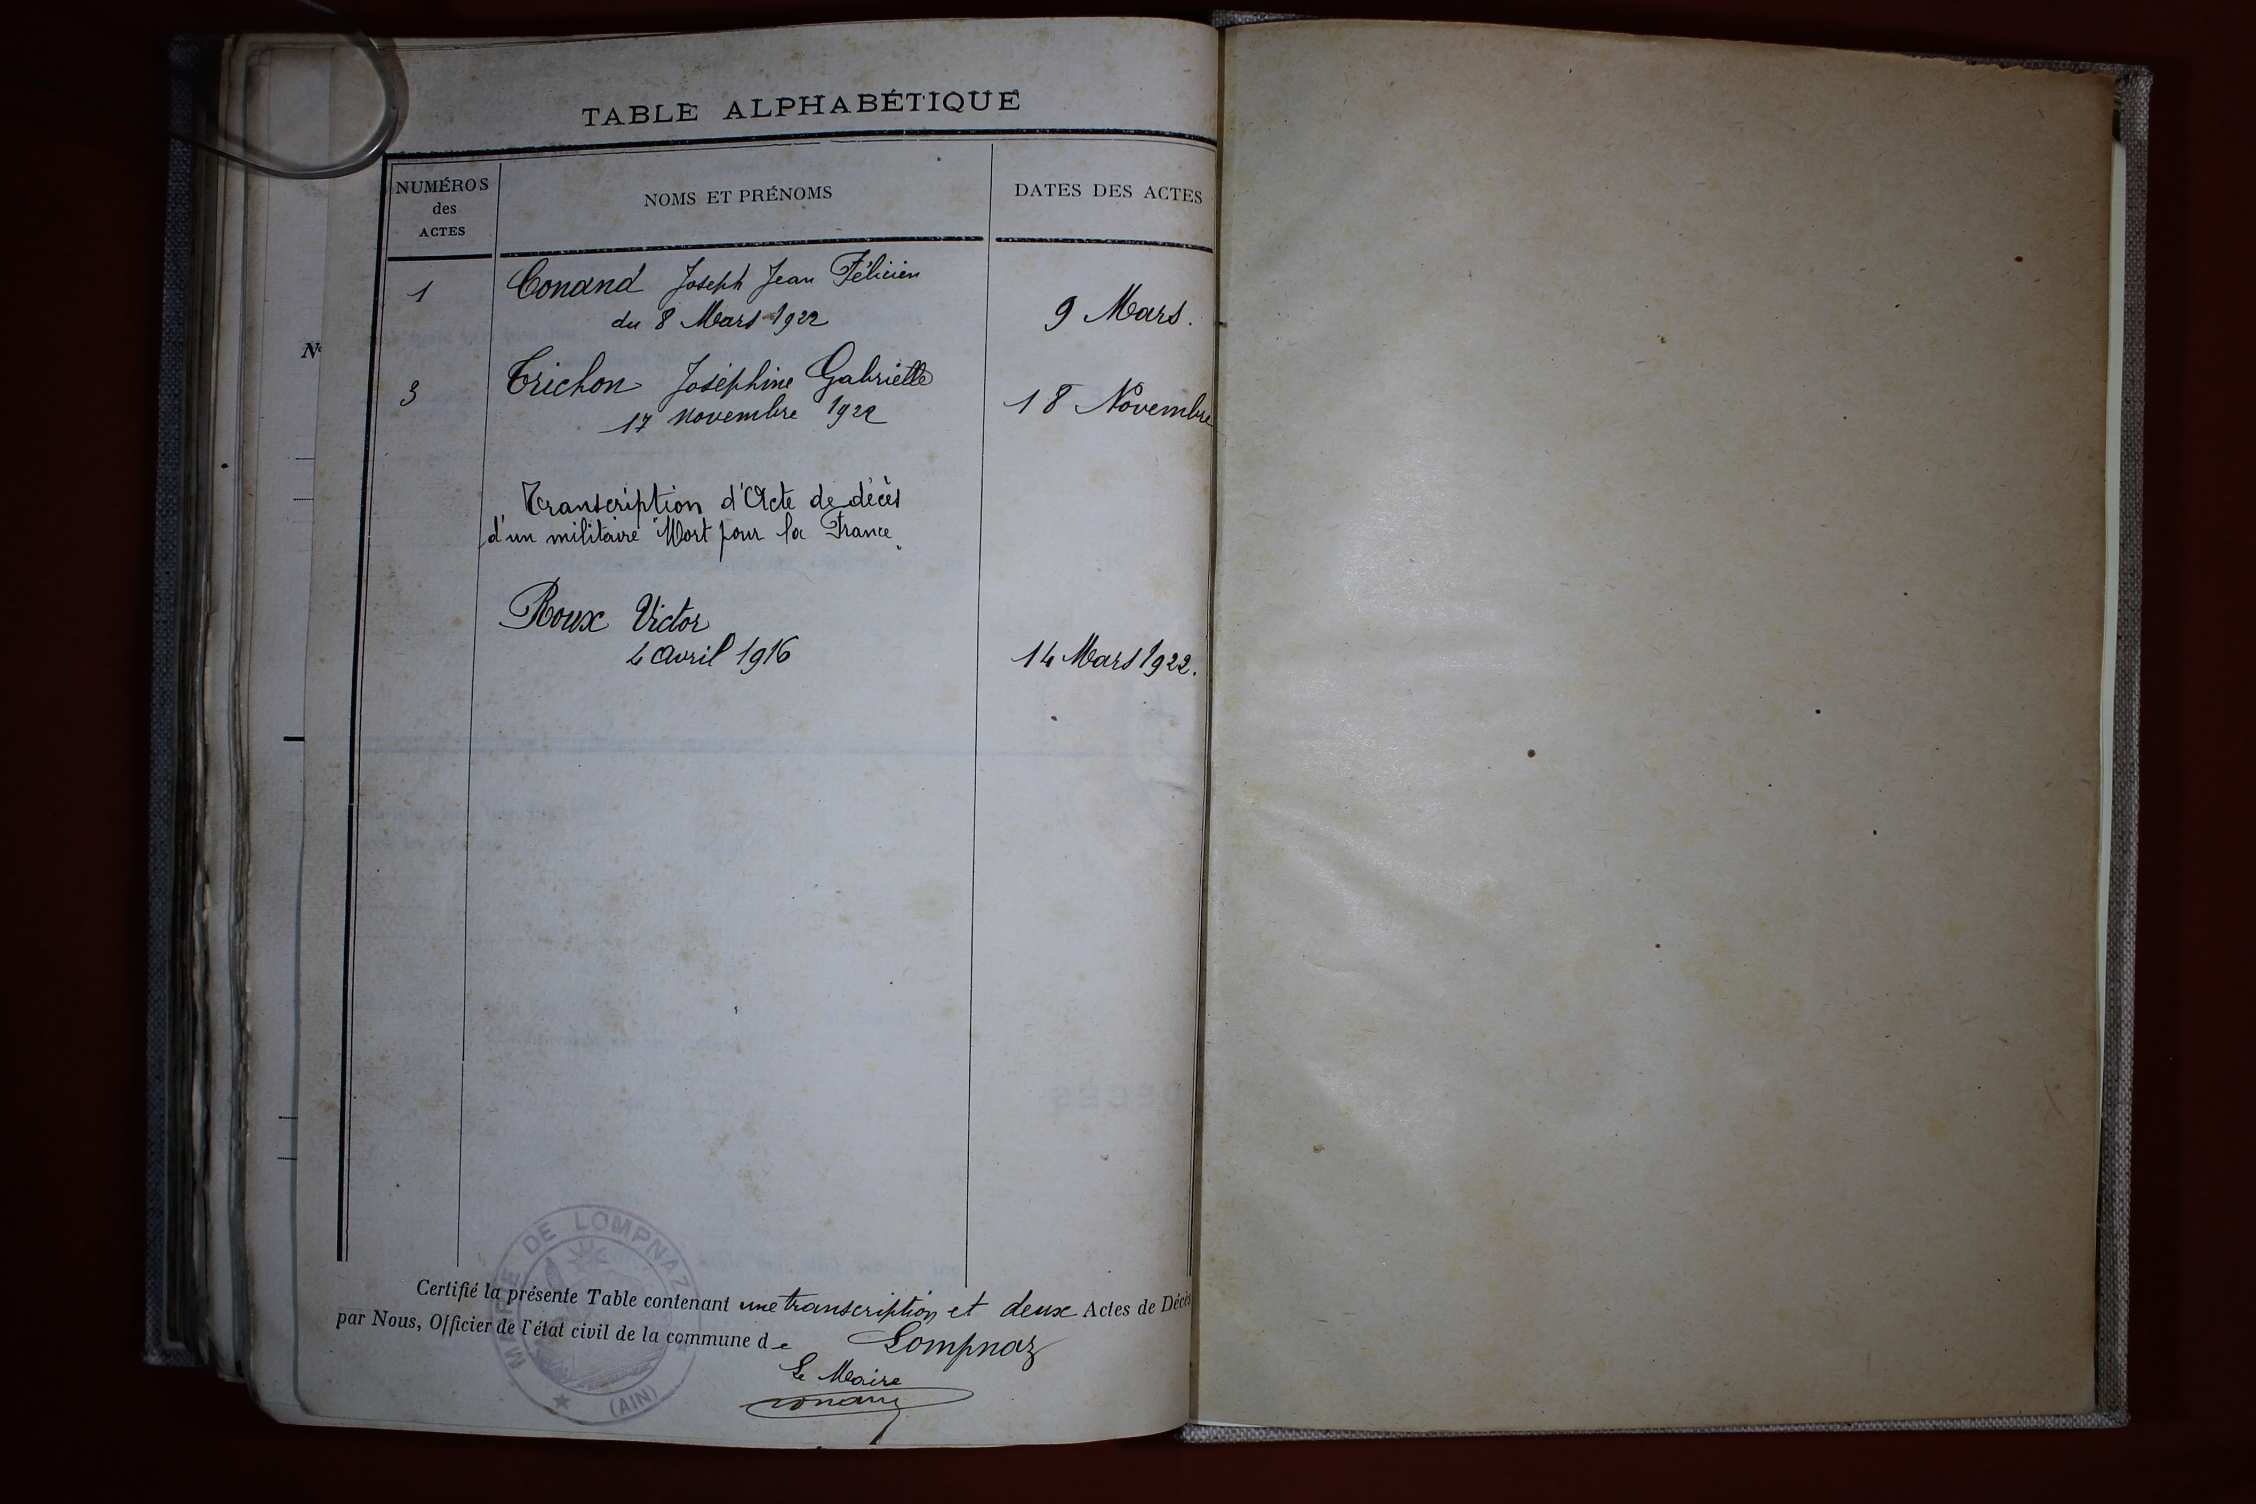 TABLE ALPHABÉTIQUE
NUMÉROS des ACTES
NOMS ET PRÉNOMS
DATES DES ACTES
1
Conand Joseph Jean Félicien
du 8 Mars 1922
9 Mars.
3
Trichon Joséphine Gabrielle
17 novembre 1922
18 Novembre
Transcription d'Acte de décès
d'un militaire Mort pour la France
Roux Victor
4 Avril 1916
14 Mars 1922.
Certifié la présente Table contenant une transcription et deux Actes de Décès
par Nous, Officier de l'état civil de la commune de Lompnaz
Le Maire
MAIRIE DE LOMPNAZ
(AIN)
N